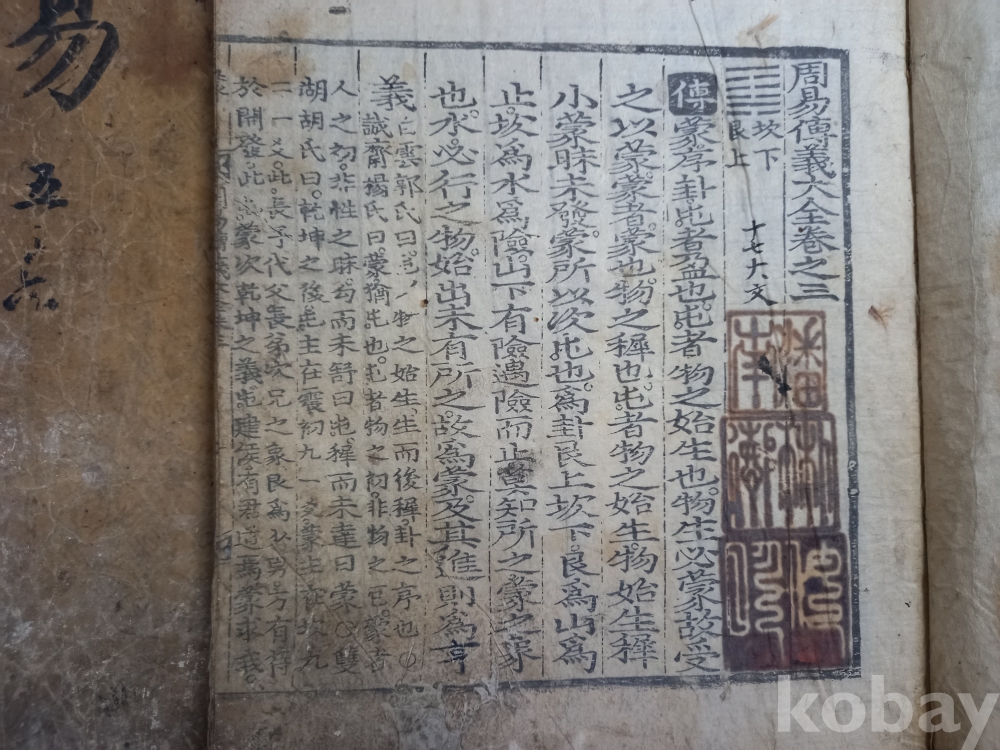 周易傳義大全卷之三
坎下
艮上
十七大文
傳蒙序卦屯者盈也屯者物之始生也物生必蒙故受
之以蒙蒙者蒙也物之穉也屯者物之始生物始生穉
小蒙昧未發蒙所以次屯也爲卦艮上坎下艮爲山爲
止坎爲水爲險山下有險遇險而止莫知所之蒙之象
也水必行之物始出未有所之故爲蒙及其進則爲亨
義 白雲郭氏曰屯物之始生生而後穉卦之序也○
誠齋楊氏曰蒙猶屯也屯者物之初非物之厄蒙者
人之初非性之昧勾而未舒曰屯穉而未達曰蒙○雙
湖胡氏曰乾坤之後屯主在震初九一爻蒙主在坎九
二一爻此長子代父長弟次兄之象艮爲少男方有待
於開發此蒙次乾坤之義屯建侯有君道焉蒙求我
易
五 六
kobay